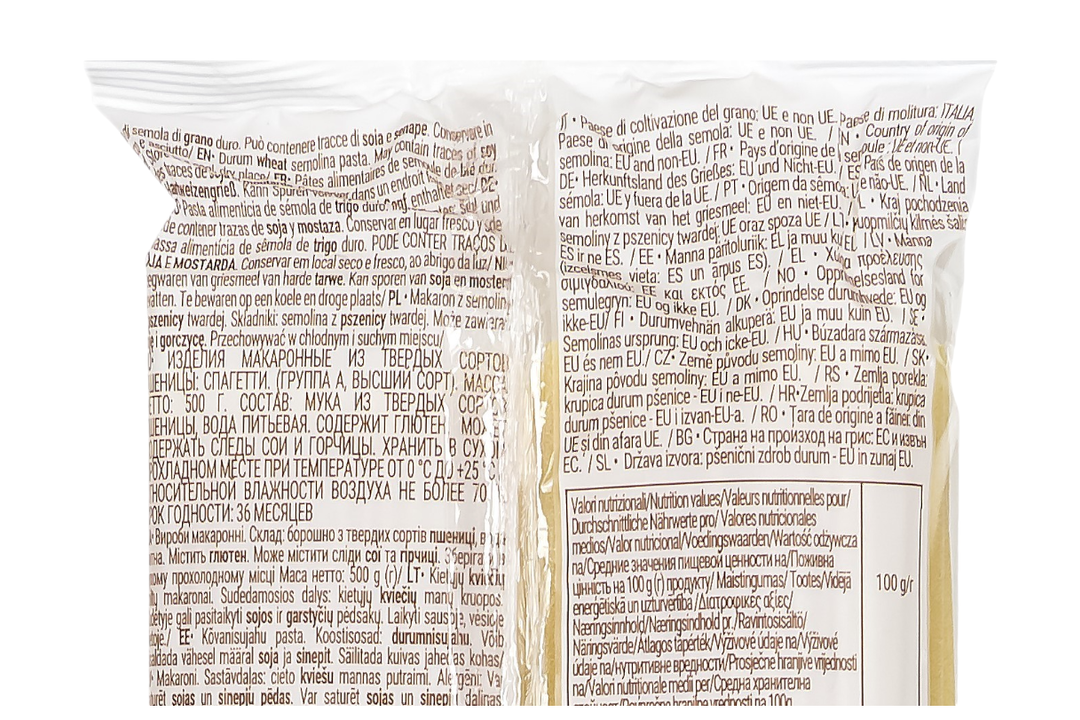 di semola di grano duro. Può contenere tracce di soia e senape. Conservare in
e asciutto/ EN• Durum wheat semolina pasta. May contain traces of soy
place/ FR• Pâtes alimentaires de semoule de blé dur.
Hartweizengrieß. Kann Spuren dans un endroit sec/ DE•
Pasta alimenticia de sémola de trigo duro. und
de contener trazas de soja y mostaza. Conservar en lugar fresco y
assa alimentícia de sêmola de trigo duro. PODE CONTER TRAÇOS
JA E MOSTARDA. Conservar em local seco e fresco, ao abrigo da luz/
egwaren van griesmeel van harde tarwe. Kan sporen van soja en
atten. Te bewaren op een koele en droge plaats/ PL• Makaron z
szenicy twardej. Składniki: semolina z pszenicy twardej. Może
i gorczycę. Przechowywać w chłodnym i suchym miejscu
ИЗДЕЛИЯ МАКАРОННЫЕ ИЗ ТВЕРДЫХ СОРТОВ
ШЕНИЦЫ: СПАГЕТТИ. (ГРУППА А, ВЫСШИЙ СОРТ). МАССА
ЕТТО: 500 Г. СОСТАВ: МУКА ИЗ ТВЕРДЫХ
ШЕНИЦЫ, ВОДА ПИТЬЕВАЯ. СОДЕРЖИТ ГЛЮТЕН.
ДЕРЖАТЬ СЛЕДЫ СОИ И ГОРЧИЦЫ. ХРАНИТЬ В
ОХЛАДНОМ МЕСТЕ ПРИ ТЕМПЕРАТУРЕ ОТ 0 °C ДО +25 °C
НОСИТЕЛЬНОЙ ВЛАЖНОСТИ ВОЗДУХА НЕ БОЛЕЕ 70
ОК ГОДНОСТИ: 36 МЕСЯЦЕВ
• Вироби макаронні. Склад: борошно з твердих сортів пшениці,
на. Містить глютен. Може містити сліди сої та гірчиці. Зберігати
ому прохолодному місці Маса нетто: 500 g (г)/ LT• Kietųjų kviečių
makaronai. Sudedamosios dalys: kietųjų kviečių manų kruopos.
ėtyje gali pasitaikyti sojos ir garstyčių pėdsakų. Laikyti sausoje, vėsioje
EE• Kõvanisujahu pasta. Koostisosad: durumnisujahu. Võib
aldada vähesel määral soja ja sinepit. Säilitada kuivas jahedas kohas/
• Makaroni. Sastāvdaļas: cieto kviešu mannas putraimi. Alergēni:
urēt sojas un sinepju pēdas. Var saturēt sojas un sinepj daļiņas
IT • Paese di coltivazione del grano: UE e non UE. Paese di molitura: ITALIA
Paese di origine della semola: UE e non UE. / EN • Country of origin of
semolina: EU and non-EU. / FR• Pays d'origine de UE et non-UE. /
DE• Herkunftsland des Grießes: EU und Nicht-EU./ ES País de origen de la
sémola: UE y fuera de la UE / PT • Origem da sêmola: e não-UE. / NL • Land
van herkomst van het griesmeel: EU en niet-EU. / PL • Kraj pochodzenia
semoliny z pszenicy twardej: UE oraz spoza UE / LT kilmės šalis:
ES ir ne ES. / EE • Manna päritoluriik: EL ja muu / LV • Manna
(izcelsmes vieta: ES un ārpus ES). / EL • Χώρα προέλευσης
σιμιγδαλιού: ΕΕ και εκτός ΕΕ / NO • Opprinnelsesland for
semulegryn: EU og ikke EU. / DK • Oprindelse durumhvede: EU og
ikke-EU/ FI • Durumvehnän alkuperä: EU ja muu kuin EU. / SE •
Semolinas ursprung: EU och icke-EU. / HU • Búzadara származása:
EU és nem EU./ CZ• Země původu semoliny: EU a mimo EU. / SK•
Krajina pôvodu semoliny: EU a mimo EU. / RS • Zemlja porekla:
krupica durum pšenice - EU i ne-EU. / HR•Zemlja podrijetla: krupica
durum pšenice - EU i izvan-EU-a. / RO • Țara de origine a făinei: din
UE și din afara UE. / BG • Страна на произход на грис: ЕС и извън
ЕС. / SL • Država izvora: pšenični zdrob durum - EU in zunaj EU.
Valori nutrizionali/Nutrition values/Valeurs nutritionnelles pour/
Durchschnittliche Nährwerte pro/ Valores nutricionales
medios/Valor nutricional/Voedingswaarden/Wartość odżywcza
na/Средние значения пищевой ценности на/Поживна
цінність на 100 g (г) продукту/ Maistingumas/ Tootes/Vidējā
enerģētiskā un uzturvērtība/Διατροφικές αξίες/
Næringsinnhold/Næringsindhold pr./Ravintosisältö/
Näringsvärde/Átlagos tápérték/Výživové údaje na/Výživové
údaje na/нутритивне вредности/Prosječne hranjive vrijednosti
na/Valori nutriționale medii per/Средна хранителна
100 g/г